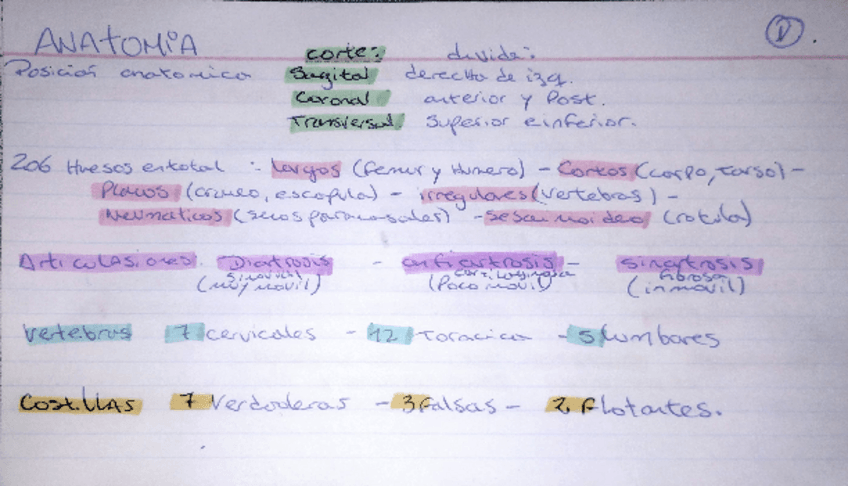 ANATOMIA
1
corte: divide:
Posición anatomica Sagital derecha de izq.
Coronal anterior y Post.
Transversal Superior e inferior.
206 Huesos en total : largos (femur y Humero) - Cortos (carpo, tarso) -
Planos (craneo, escapula) - irregulares (vertebras) -
Neumaticos (senos paranasales) - Sesamoideo (rotula)
Articulasiones. Diartrosis - anfiartrosis - sinartrosis
sinovial cartilaginosa fibrosa
(muy movil) (Poco movil) (inmovil)
Vertebras 7 cervicales - 12 Toracica - 5 lumbares
Costillas 7 Verdaderas - 3 falsas - 2 flotantes.